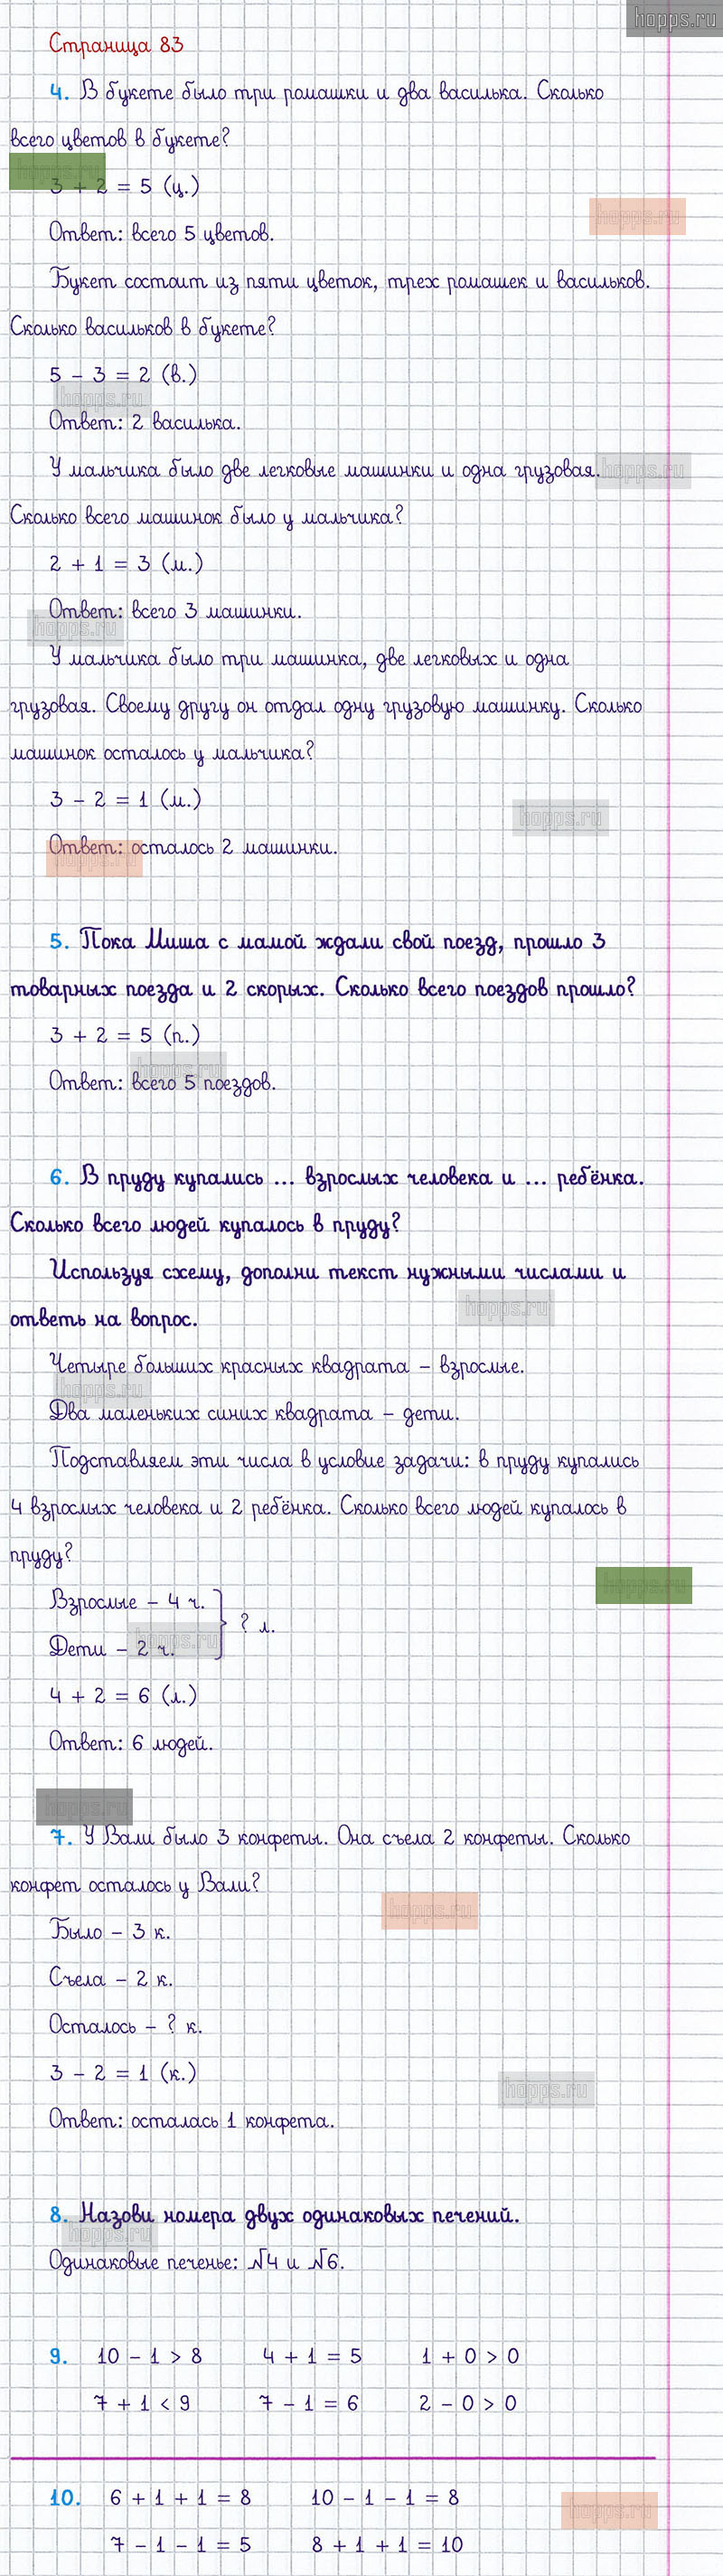 hopps.ru
Страница 83
4. В букете было три ромашки и два василька. Сколько
всего цветов в букете?
hopps.ru
3 + 2 = 5 (ц.)
hopps.ru
Ответ: всего 5 цветов.
Букет состоит из пяти цветок, трех ромашек и васильков.
Сколько васильков в букете?
5 - 3 = 2 (в.)
hopps.ru
Ответ: 2 василька.
У мальчика было две легковые машинки и одна грузовая.
hopps.ru
Сколько всего машинок было у мальчика?
2 + 1 = 3 (м.)
Ответ: всего 3 машинки.
hopps.ru
У мальчика было три машинка, две легковых и одна
грузовая. Своему другу он отдал одну грузовую машинку. Сколько
машинок осталось у мальчика?
3 - 2 = 1 (м.)
hopps.ru
Ответ: осталось 2 машинки.
hopps.ru
5. Пока Миша с мамой ждали свой поезд, прошло 3
товарных поезда и 2 скорых. Сколько всего поездов прошло?
3 + 2 = 5 (п.)
hopps.ru
Ответ: всего 5 поездов.
6. В пруду купались ... взрослых человека и ... ребёнка.
Сколько всего людей купалось в пруду?
Используя схему, дополни текст нужными числами и
hopps.ru
ответь на вопрос.
Четыре больших красных квадрата – взрослые.
hopps.ru
Два маленьких синих квадрата – дети.
Подставляем эти числа в условие задачи: в пруду купались
4 взрослых человека и 2 ребёнка. Сколько всего людей купалось в
пруду?
hopps.ru
Взрослые – 4 ч.
? л.
Дети – 2 ч.
hopps.ru
4 + 2 = 6 (л.)
Ответ: 6 людей.
hopps.ru
7. У Вали было 3 конфеты. Она съела 2 конфеты. Сколько
конфет осталось у Вали?
hopps.ru
Было – 3 к.
Съела – 2 к.
Осталось – ? к.
3 - 2 = 1 (к.)
hopps.ru
Ответ: осталась 1 конфета.
8. Назови номера двух одинаковых печений.
hopps.ru
Одинаковые печенье: №4 и №6.
9. 10 - 1 > 8 4 + 1 = 5 1 + 0 > 0
7 + 1 < 9 7 - 1 = 6 2 - 0 > 0
10. 6 + 1 + 1 = 8 10 - 1 - 1 = 8
hopps.ru
7 - 1 - 1 = 5 8 + 1 + 1 = 10